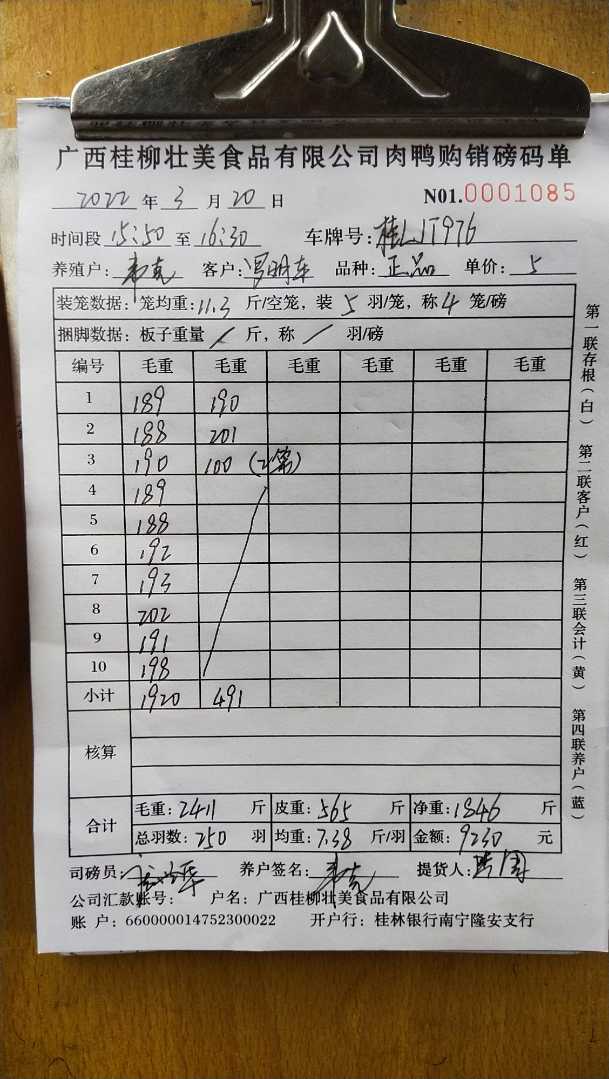 广西桂柳壮美食品有限公司肉鸭购销磅码单
2022 年 3 月 20 日 N01.0001085
时间段 15:50 至 16:30 车牌号:桂LJT976
养殖户: 韦克 客户: 罗明东 品种: 正品 单价: 5
装笼数据: 笼均重: 11.3 斤/空笼, 装 5 羽/笼, 称 4 笼/磅
捆脚数据: 板子重量 / 斤, 称 / 羽/磅
编号 毛重 毛重 毛重 毛重 毛重 毛重
1 189 190
2 188 201
3 190 100 (2笼)
4 189
5 188
6 192
7 193
8 202
9 191
10 198
小计 1920 491
核算
合计 毛重: 2411 斤 皮重: 565 斤 净重: 1846 斤
总羽数: 250 羽 均重: 7.38 斤/羽 金额: 9230 元
司磅员: 养户签名: 韦克 提货人:
公司汇款账号: 户名: 广西桂柳壮美食品有限公司
账 户: 660000014752300022 开户行: 桂林银行南宁隆安支行
第一联存根(白) 第二联客户(红) 第三联会计(黄) 第四联养户(蓝)